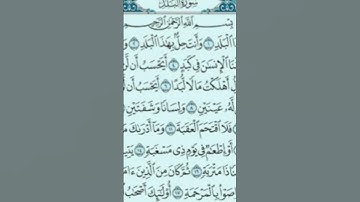 سورة البلد
بِسْمِ ٱللَّهِ ٱلرَّحْمَٰنِ ٱلرَّحِيمِ
ٱلْبَلَدِ ١ وَأَنتَ حِلٌّۢ بِهَٰذَا ٱلْبَلَدِ ٢
ٱلْإِنسَٰنَ فِى كَبَدٍ ٤ أَيَحْسَبُ أَن لَّن
أَهْلَكْتُ مَالًا لُّبَدًا ٦ أَيَحْسَبُ أَن
لَّهُۥ عَيْنَيْنِ ٨ وَلِسَانًا وَشَفَتَيْنِ
فَلَا ٱقْتَحَمَ ٱلْعَقَبَةَ ١١ وَمَآ أَدْرَىٰكَ
أَوْ إِطْعَٰمٌ فِى يَوْمٍ ذِى مَسْغَبَةٍ ١٤
ذَا مَتْرَبَةٍ ١٦ ثُمَّ كَانَ مِنَ ٱلَّذِينَ
بِٱلْمَرْحَمَةِ ١٧ أُو۟لَٰٓئِكَ أَصْحَٰبُ